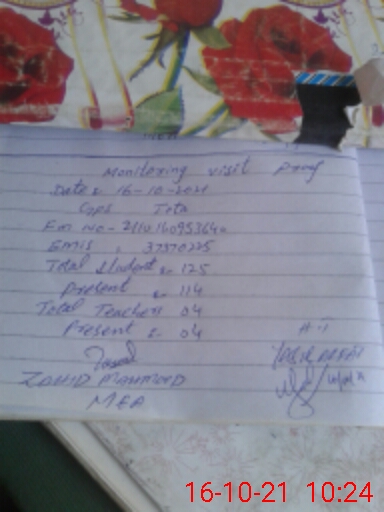 Monitoring visit proof
Date:- 16-10-2021
GPS Tota
Em No-
Emis : 37370225
Total student:- 125
Present :- 114
Total Teacher:- 04
Present :- 04
H-T
ZAHID MAHMOOD
MEA
16-10-21 10:24